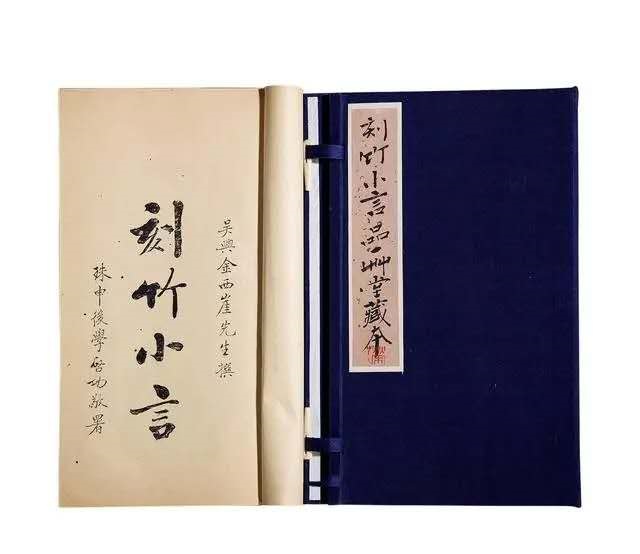 吴興金西崖先生撰
刻竹小言
珠申後學啓功敬署
刻竹小言品艸堂藏本